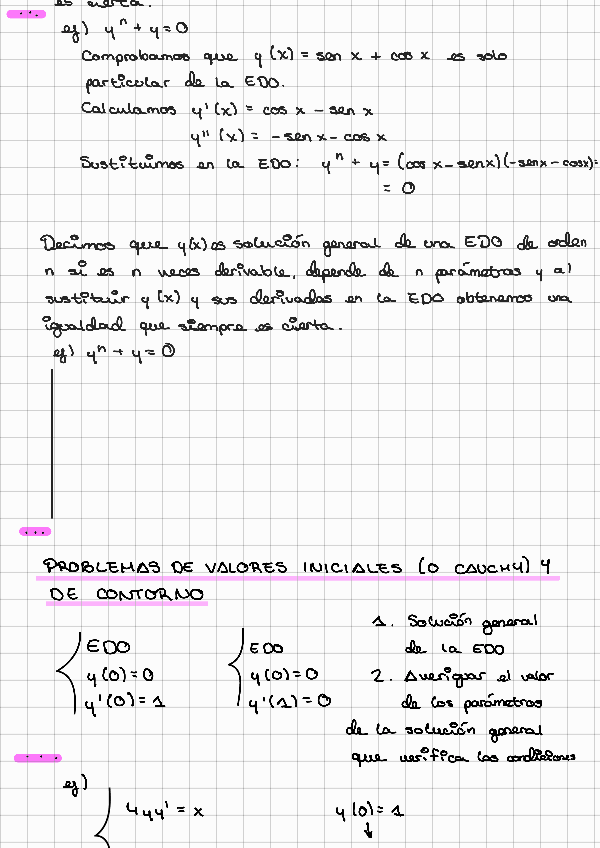 es cierta.
ej) y" + y = 0
Comprobamos que y(x) = sen x + cos x es solo
particular de la EDO.
Calculamos y'(x) = cos x - sen x
y"(x) = -sen x - cos x
Sustituimos en la EDO: y" + y = (cos x - senx)(-senx - cosx)=
= 0
Decimos que y(x) es solución general de una EDO de orden
n si es n veces derivable, depende de n parámetros y al
sustituir y(x) y sus derivadas en la EDO obtenemos una
igualdad que siempre es cierta.
ej) y" + y = 0
PROBLEMAS DE VALORES INICIALES (O CAUCHY) Y
DE CONTORNO
EDO
y(0) = 0
y'(0) = 1
EDO
y(0) = 0
y'(1) = 0
1. Solución general
de la EDO
2. Averiguar el valor
de los parámetros
de la solución general
que verifica las condiciones
ej)
4yy' = x
y(0) = 1
↓